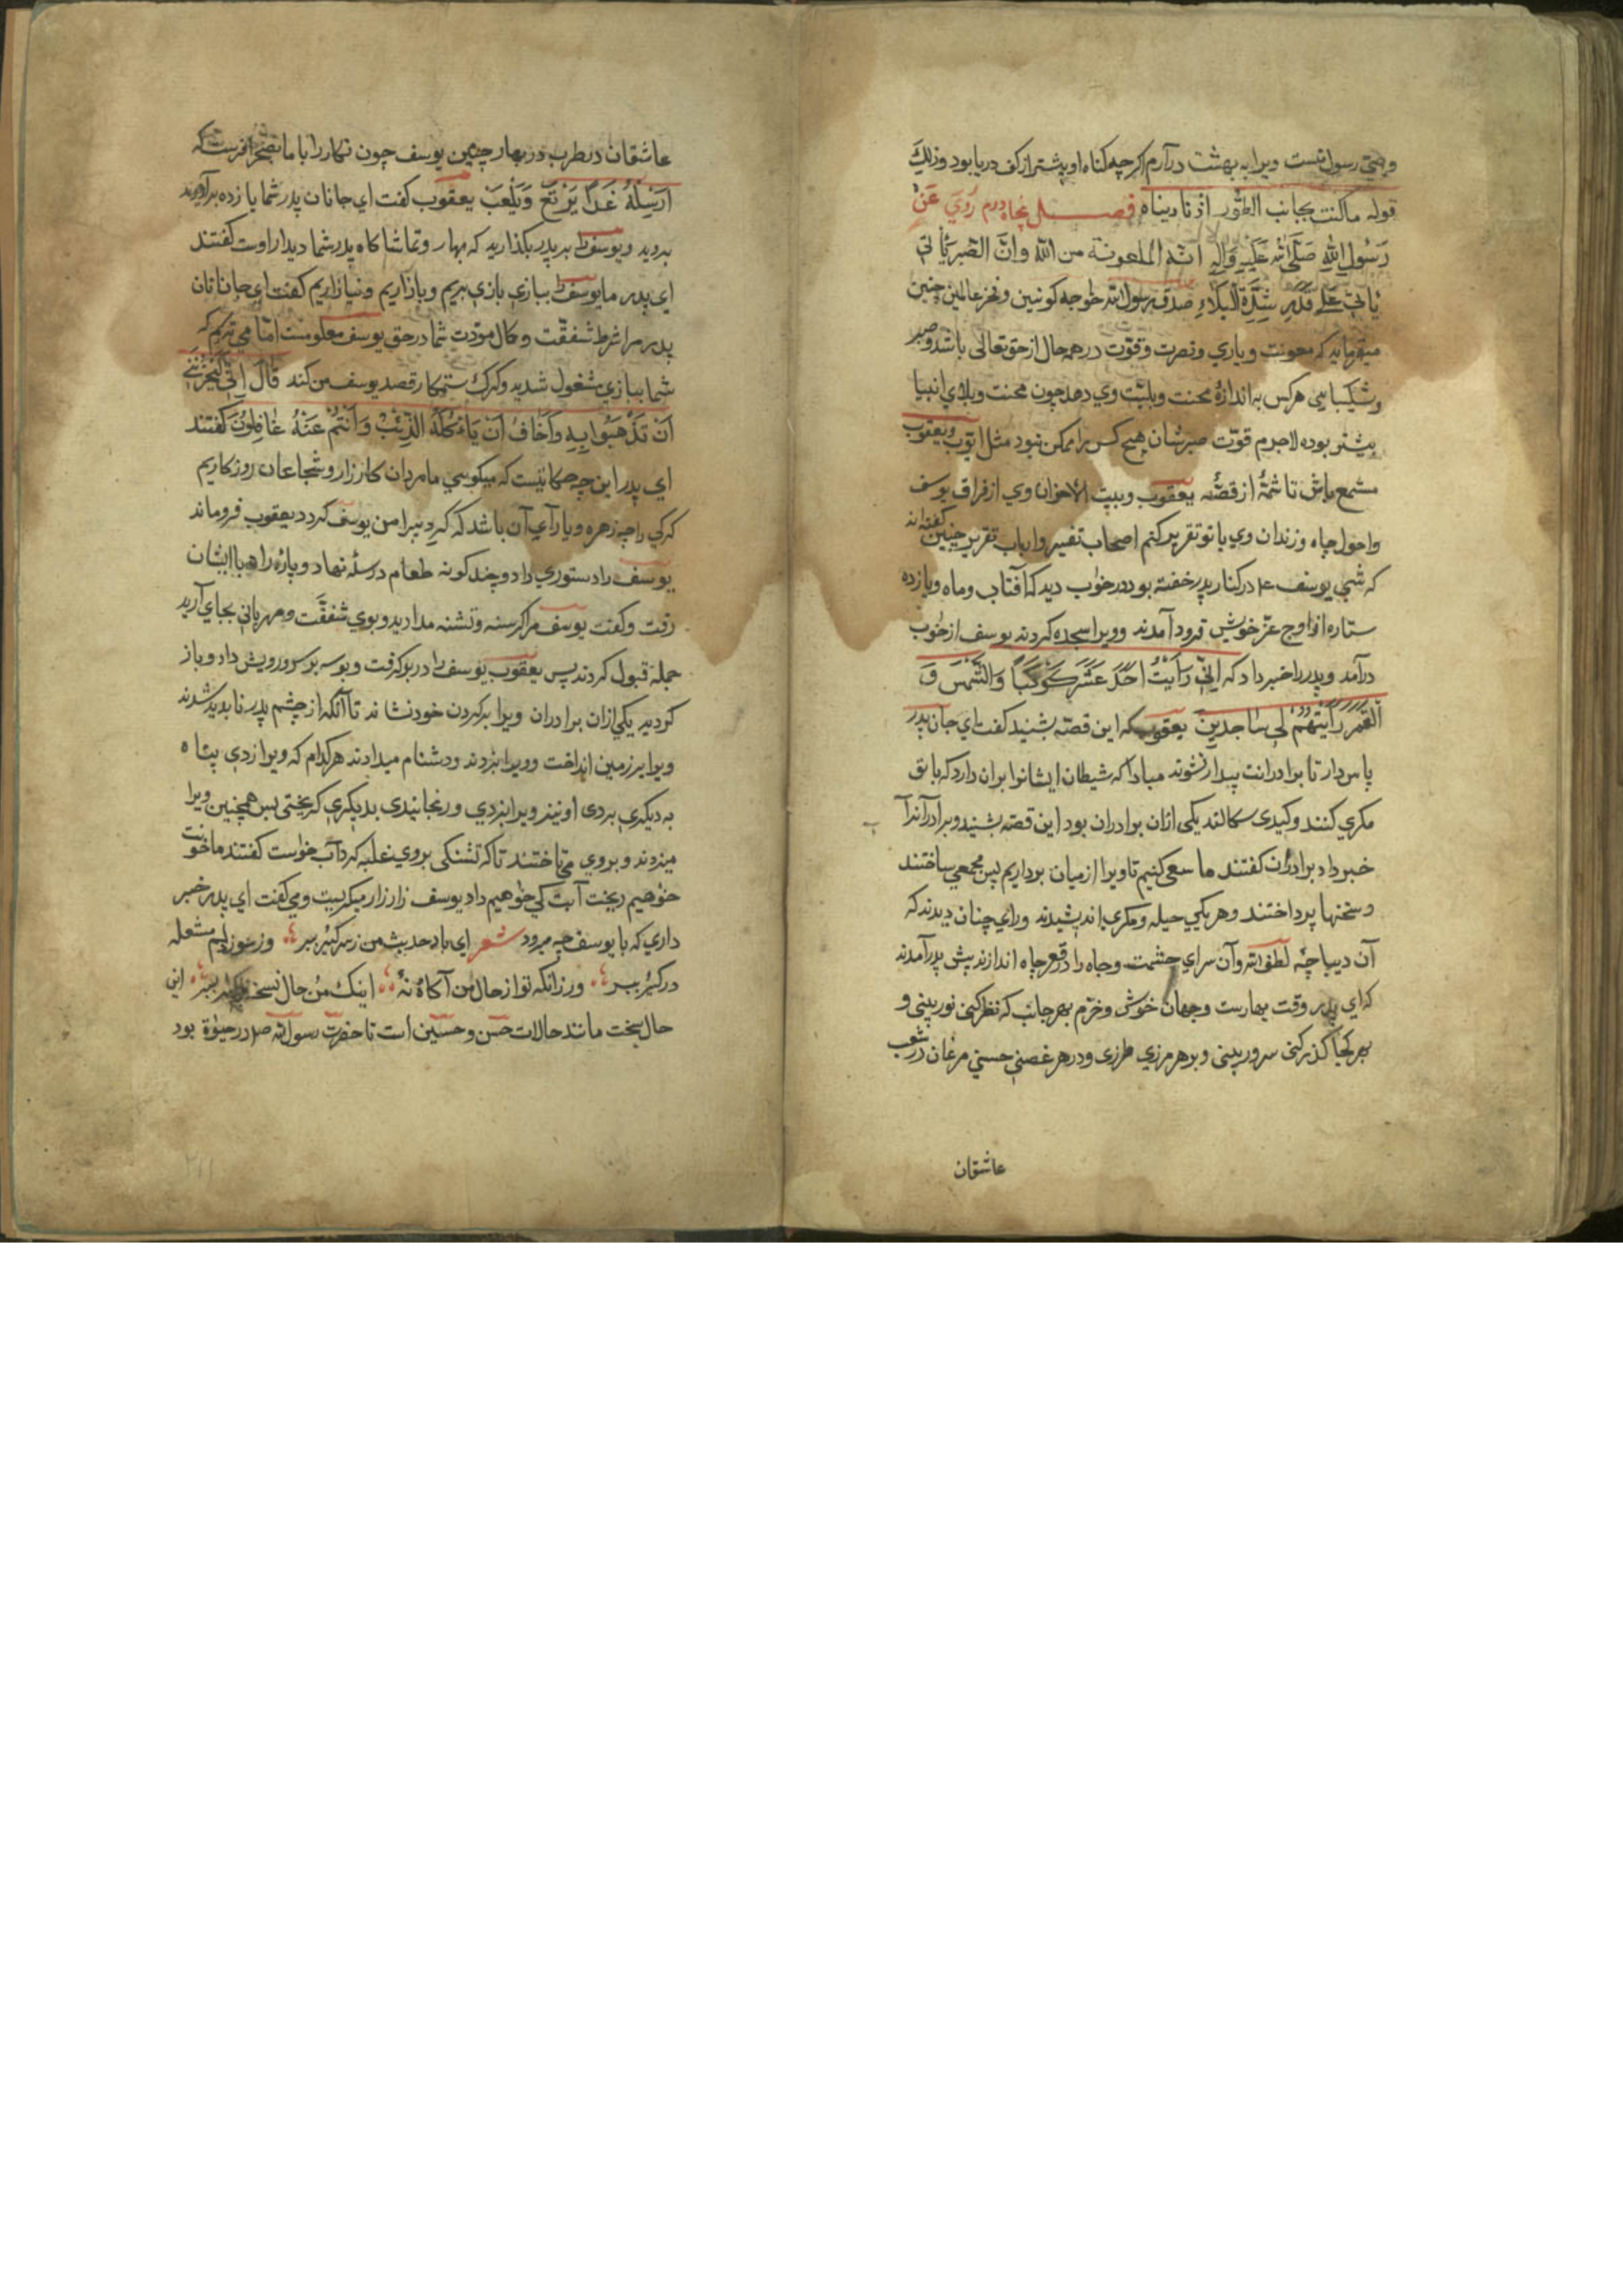 وصی رسول تست ویرا به بهشت درآرم اکرچه کناه او بیشتر از کف دریا بود وذلِکَ
قوله ماکنت بجانب الطّور اذ نادیناه فصــل پنجاه درم رُوِیَ عَنْ
رَسُولِ اللهِ صَلَّی اللهُ عَلَیهِ وَآلِهِ انّه المعونة من الله وانّ الصّبر یَأتی
یأتی عَلی قَدْرِ شِدَّةِ البَلاءِ صدق رسول الله خواجه کونین وفخر عالمین چنین
میفرماید که معونت ویاری ونصرت وقوّت در همه حال از حق تعالی باشد وصبر
وشکیبایی هرکس به اندازهٔ محنت وبلیّت وی دهد چون محنت وبلای انبیا
بیشتر بوده لاجرم قوّت صبرشان هیچ کس را ممکن نبود مثل ایّوب ویعقوب
مستمع باش تا شمّهٔ از قصّهٔ یعقوب وبیت الاحزان وی از فراق یوسف
واحول چاه وزندان وی با تو تقریر کنم اصحاب تفسیر وارباب تقریر چنین کفته اند
که شبی یوسف ع در کنار پدر خفته بود در خواب دید که آفتاب وماه ویازده
ستاره از اوج عزّ خویش فرود آمدند وویرا سجده کردند یوسف از خواب
درآمد وپدر را خبر داد که اِنّی رَاَیْتُ اَحَدَ عَشَرَ کَوْکَبًا وَالشَّمْسَ وَ
الْقَمَرَ رَاَیْتُهُمْ لِی سَاجِدِینَ یعقوب که این قصّه بشنید کفت ای جان پدر
پاس دار تا برادرانت بیدار نشوند مبادا که شیطان ایشانرا بران دارد که با تو
مکری کنند وکیدی سکالند یکی ازان برادران بود این قصّه بشنید وبرادرانرا
خبر داد برادران کفتند ما سعی کنیم تا ویرا از میان برداریم پس مجمعی ساختند
وسخنها پرداختند وهر یکی حیله ومکری اندیشیدند ورای چنان دیدند که
آن دیباچهٔ لطف الله وآن سرای حشمت وجاه را در قعر چاه اندازند پیش پدر آمدند
که ای پدر وقت بهارست وجهان خوش وخرّم بهر جانب که نظر کنی نور بینی و
بهر کجا کذر کنی سرور بینی وبر هر مرزی طرزی ودر هر غصنی حسنی مرغان در شعب
عاشقان
عاشقان در طرب در بهار چنین یوسف چون نکار را با ما بصحرا فرست که
اَرْسِلْهُ غَدًا یَرْتَعْ وَیَلْعَبْ یعقوب کفت ای جانان پدر شما یازده برادرید
بروید ویوسف را بر پدر بکذارید که بهار وتماشاکاه پدر شما دیدار اوست کفتند
ای پدر ما یوسف را ببازی بازی بریم وبازآریم ونیازاریم کفت ای جانانان
پدر مرا شرط شفقّت وکال مودّت شما در حق یوسف معلومست امّا می ترسم که
شما ببازی مشغول شوید وکرک ستمکار قصد یوسف من کند قَالَ اِنّی لَیَحْزُنُنِی
اَنْ تَذْهَبُوا بِهِ وَاَخَافُ اَنْ یَاْکُلَهُ الذِّئْبُ وَاَنْتُمْ عَنْهُ غَافِلُونَ کفتند
ای پدر این چه حکایتست که میکویی ما مردان کارزار وشجاعان روزکاریم
کرکی را چه زهره ویارآی آن باشد که کرد پیرامن یوسف کردد یعقوب فروماند
یوسف را دستوری داد وچند کونه طعام در سله نهاد وپارهٔ راه با ایشان
رفت وکفت یوسف مرا کرسنه وتشنه مدارید وبوی شفقّت ومهربانی بجای آرید
جمله قبول کردند پس یعقوب یوسف را در بر کرفت وبوسه بر سر ورویش داد وباز
کردید یکی ازان برادران ویرا بر کردن خود نشاند تا آنکه از چشم پدر ناپدید شدند
ویرا بر زمین انداخت وویرا بزدند ودشنام میدادند هر کدام که ویرا زدی پناه
به دیکری بردی او نیز ویرا بزدی ورنجانیدی بدیکری کریختی پس همچنین ویرا
میزدند وبر وی می تاختند تا که تشنکی بر وی غلبه کرد آب خواست کفتند ما خونت
خواهیم ریخت آبت کی خواهیم داد یوسف زار زار میکریست ومی کفت ای پدر خبر
داری که با یوسف چه میرود شعر ای باد حدیث من زسر کیر ببر وز سوز دلم مشعله
در کیر ببر ور زانکه تو از حال من آکاه نهٔ اینک من حال نسخه ببر این
حال سخت مانند حالات حسن وحسین است تا حضرت رسول الله ص در حیوة بود